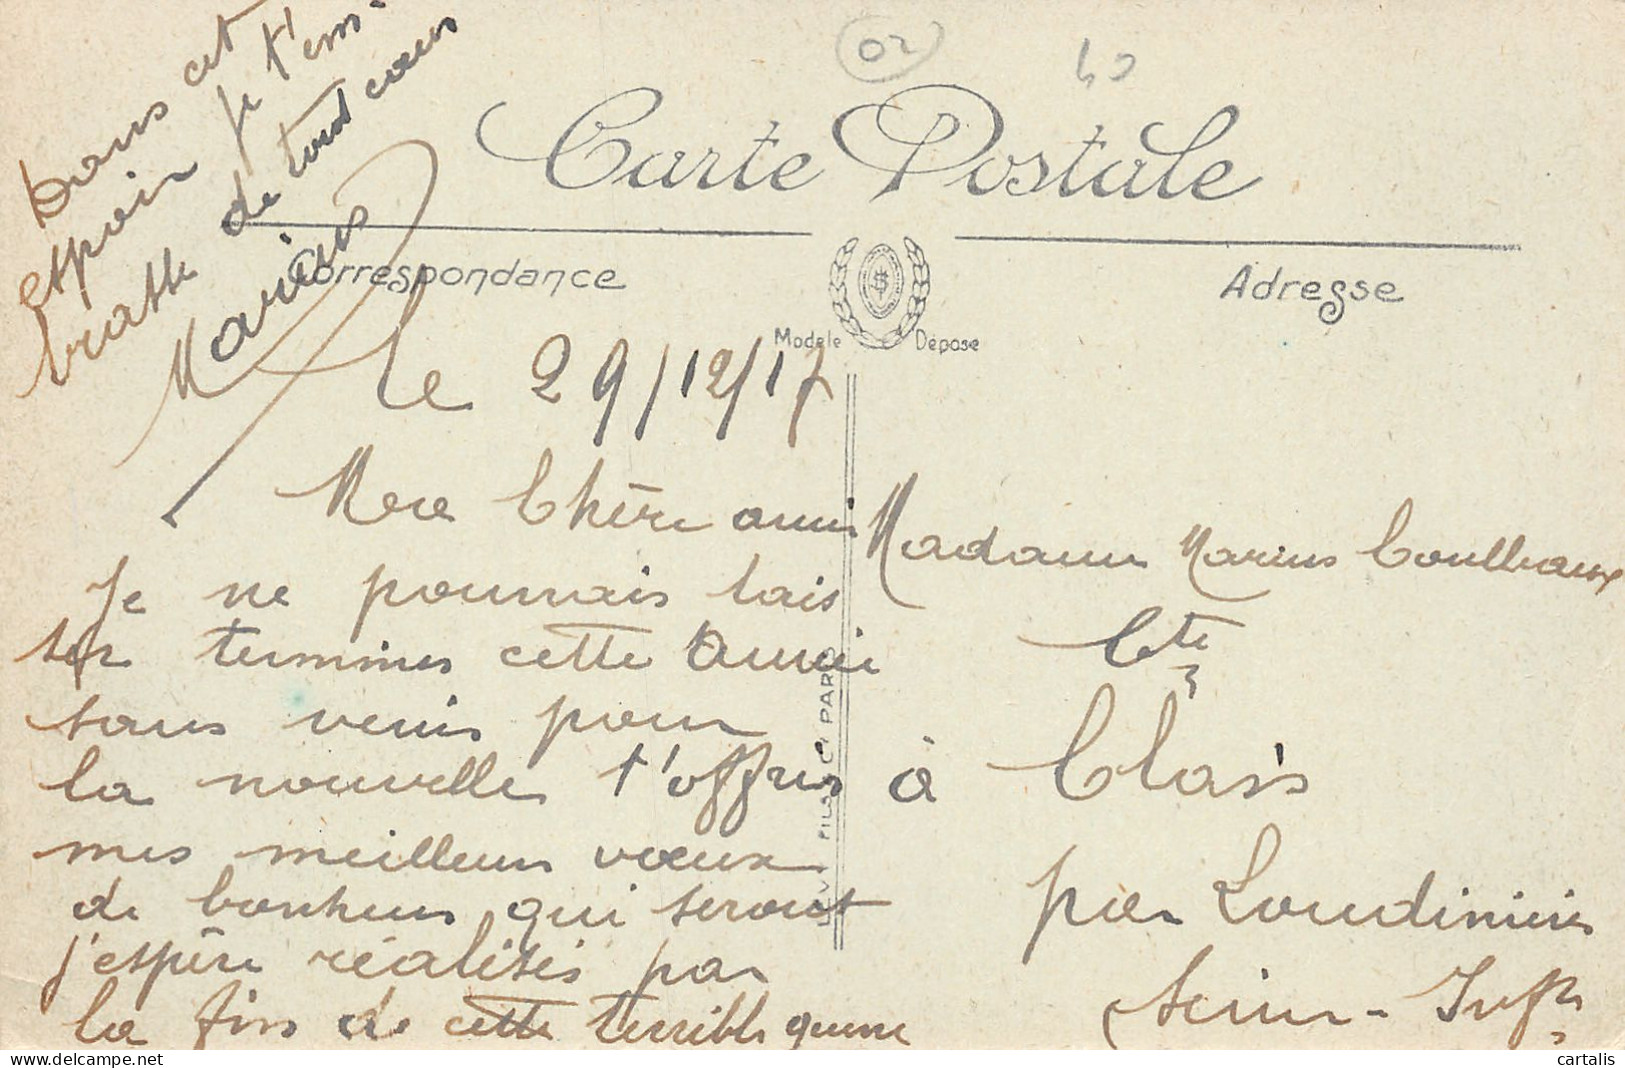 02
40
Carte Postale
Correspondance
Adresse
Modèle Déposé
le 29/12/17
Ma Chère amie
Je ne pourrais lais
ser terminer cette année
sans venir pour
la nouvelle t'offrir
mes meilleurs vœux
de bonheur qui seront
j'espère réalisés par
la fin de cette terrible guerre
Dans cet
espoir je t'em-
brasse de tout cœur
Marius
Madame Marius Coulbeaux
Cte
à Clais
par Londinières
Seine-Infre
FILS Cie PARIS
cartalis